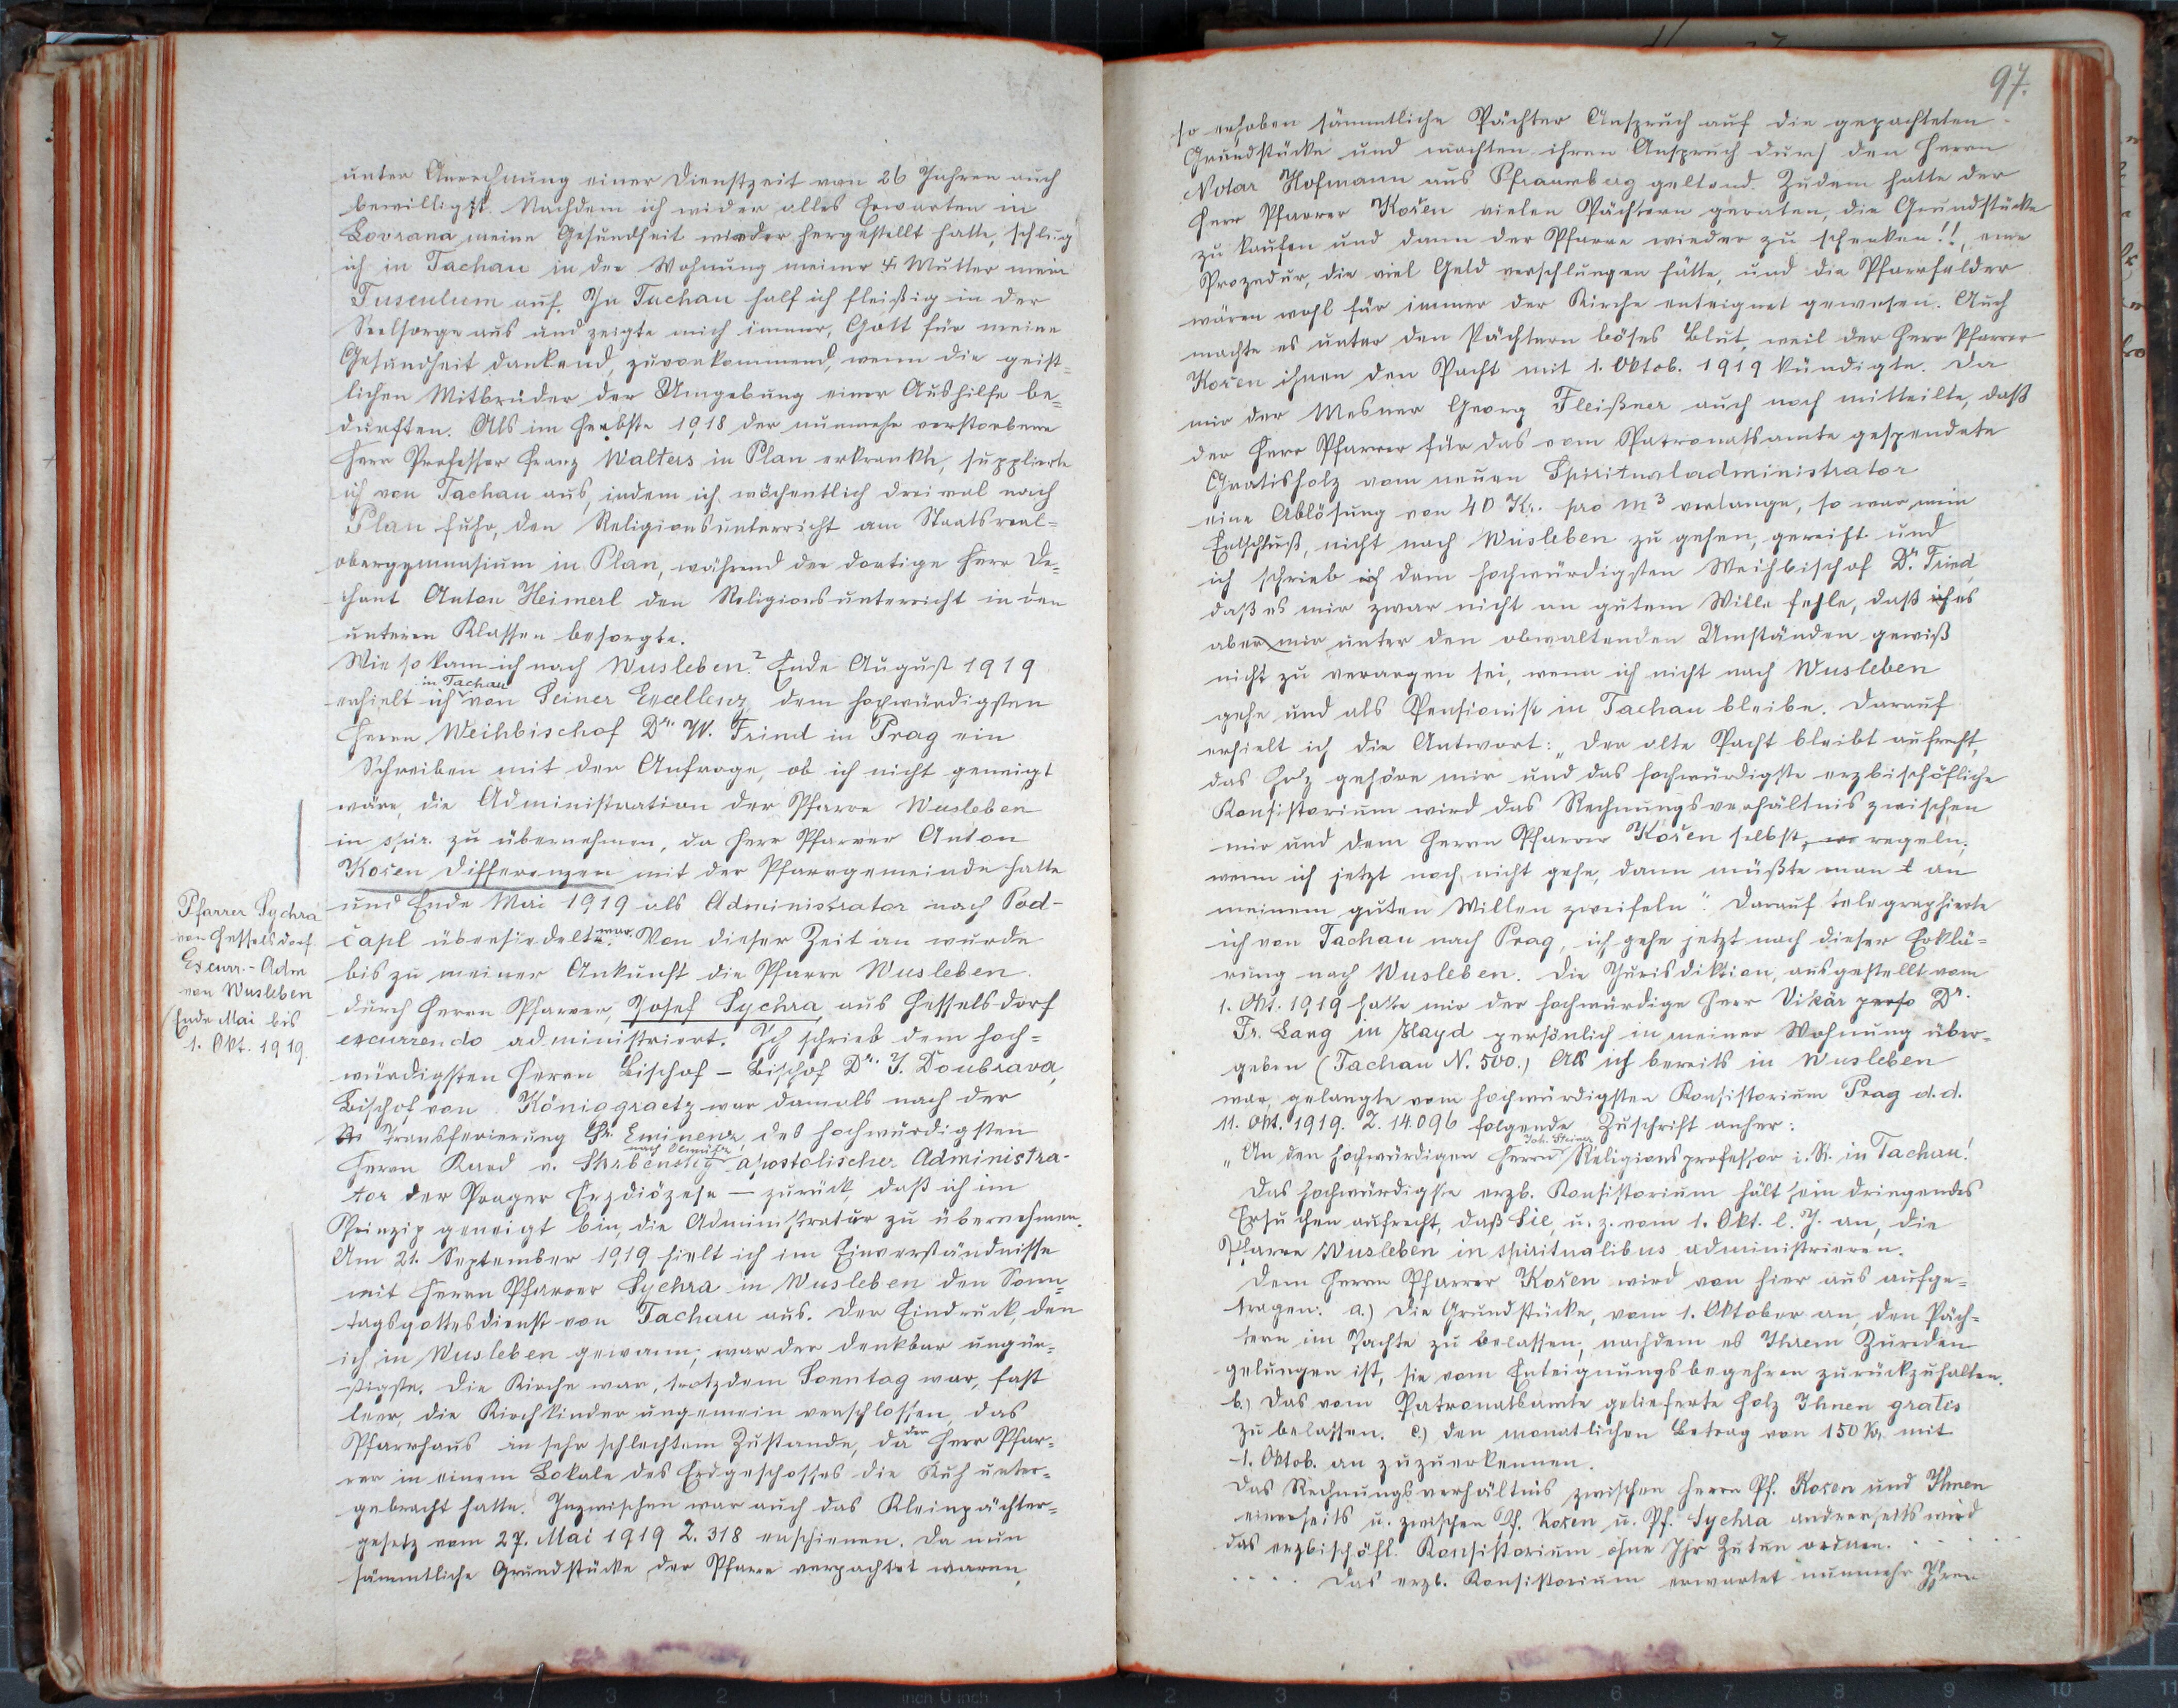 unter Anrechnung einer Dienstzeit von 26 Jahren auch
bewilligt. Nachdem ich wider alles Erwarten in
Lovrana meine Gesundheit wieder hergestellt hatte, schlug
ich in Tachau in der Wohnung meiner † Mutter mein
Tusculum auf. In Tachau half ich fleißig in der
Seelsorge aus und zeigte mich immer, Gott für meine
Gesundheit dankend, zuvorkommend, wenn die geist=
lichen Mitbrüder der Umgebung einer Aushilfe be=
durften. Als im Herbste 1918 der nunmehr verstorbene
Herr Professor Franz Walters in Plan erkrankte, supplierte
ich von Tachau aus, indem ich wöchentlich dreimal nach
Plan fuhr, den Religionsunterricht am Staatsreal=
obergymnasium in Plan, während der dortige Herr De=
chant Anton Heimerl den Religionsunterricht in den
unteren Klassen besorgte.
Wie so kam ich nach Wusleben? Ende August 1919
in Tachau
erhielt ich von Seiner Excellenz, dem hochwürdigsten
Herrn Weihbischof Dr. W. Frind in Prag ein
Schreiben mit der Anfrage, ob ich nicht geneigt
wäre, die Administration der Pfarre Wusleben
in spir. zu übernehmen, da Herr Pfarrer Anton
Kořen Differenzen mit der Pfarrgemeinde hatte
und Ende Mai 1919 als Administrator nach Pod-
čapl übersiedelt war. Von dieser Zeit an wurde
bis zu meiner Ankunft die Pfarre Wusleben
durch Herrn Pfarrer, Josef Sychra aus Hesselsdorf
excurrendo administriert. Ich schrieb dem hoch=
würdigsten Herrn Bischof – Bischof Dr. J. Doubrava,
Bischof von Königgraetz war damals nach der
Transferierung Sr. Eminenz, des hochwürdigsten
nach Olmütz
Herrn Kard v. Skrbensky apostolischer Administra-
tor der Prager Erzdiözese – zurück, daß ich im
Prinzip geneigt bin, die Administratur zu übernehmen.
Am 21. September 1919 hielt ich im Einverständnisse
mit Herrn Pfarrer Sychra in Wusleben den Sonn=
tagsgottesdienst von Tachau aus. Der Eindruck, den
ich in Wusleben gewann, war der denkbar ungün=
stigste. Die Kirche war, trotzdem Sonntag war, fast
leer, die Kirchkinder ungemein verschlossen, das
Pfarrhaus in sehr schlechtem Zustande, da der Herr Pfar=
rer in einem Lokale des Erdgeschosses die Kuh unter=
gebracht hatte. Inzwischen war auch das Kleinpächter=
gesetz vom 27. Mai 1919 Z. 318 erschienen. Da nun
sämmtliche Grundstücke der Pfarre verpachtet waren,
Pfarrer Sychra
von Hesselsdorf
Excurr.-Adm
von Wusleben
(Ende Mai bis
1. Okt. 1919.
97.
so erhoben sämmtliche Pächter Anspruch auf die gepachteten
Grundstücke und machten ihren Anspruch durch den Herrn
Notar Hofmann aus Pfraumberg geltend. Zudem hatte der
Herr Pfarrer Kořen vielen Pächtern geraten, die Grundstücke
zu kaufen und dann der Pfarre wieder zu schenken!!, eine
Prozedur, die viel Geld verschlungen hätte, und die Pfarrfelder
wären wohl für immer der Kirche enteignet gewesen. Auch
machte es unter den Pächtern böses Blut, weil der Herr Pfarrer
Kořen ihnen den Pacht mit 1. Oktob. 1919 kündigte. Da
mir der Mesner Georg Fleißner auch noch mitteilte, daß
der Herr Pfarrer für das vom Patronatsamte gespendete
Gratisholz vom neuen Spiritualadministrator
eine Ablösung von 40 Kr. pro m³ verlange, so war mein
Entschluß, nicht nach Wusleben zu gehen, gereift und
ich schrieb ich dem hochwürdigsten Weihbischof Dr. Frind,
daß es mir zwar nicht an gutem Wille fehle, daß ich es
aber mir unter den obwaltenden Umständen gewiß
nicht zu verargen sei, wenn ich nicht nach Wusleben
gehe und als Pensionist in Tachau bleibe. Darauf
erhielt ich die Antwort: „Der alte Pacht bleibt aufrecht,
das Holz gehöre mir und das hochwürdigste erzbischöfliche
Konsistorium wird das Rechnungsverhältnis zwischen
mir und dem Herrn Pfarrer Kořen selbst regeln;
wenn ich jetzt noch nicht gehe, dann müßte man an
meinem guten Willen zweifeln". Darauf telegraphierte
ich von Tachau nach Prag, ich gehe jetzt nach dieser Erklä=
rung nach Wusleben. Die Jurisdiktion, ausgestellt vom
1. Okt. 1919 hatte mir der hochwürdige Herr Vikär perso Dr.
Fr. Lang in Hayd persönlich in meiner Wohnung über=
geben (Tachau N. 500.) Als ich bereits in Wusleben
war, gelangte vom hochwürdigsten Konsistorium Prag d.d.
11. Okt. 1919. Z. 14.096 folgende Zuschrift anher:
Joh. Steiner
„An den hochwürdigen Herrn Religionsprofessor i. R. in Tachau!
Das hochwürdigste erzb. Konsistorium hält sein dringendes
Ersuchen aufrecht, daß Sie, u. z. vom 1. Okt. l. J. an, die
Pfarre Wusleben in spiritualibus administrieren.
Dem Herrn Pfarrer Kořen wird von hier aus aufge=
tragen: a.) Die Grundstücke, vom 1. Oktober an, den Päch=
tern im Pachte zu belassen, nachdem es Ihrem Zureden
gelungen ist, sie vom Enteignungsbegehren zurückzuhalten.
b.) Das vom Patronatsamte gelieferte Holz Ihnen gratis
zu belassen. c.) Den monatlichen Betrag von 150 Kr. mit
1. Oktob. an zuzuerkennen.
Das Rechnungsverhältnis zwischen Herrn Pf. Kořen und Ihnen
einerseits u. zwischen Pf. Kořen u. Pf. Sychra andrerseits wird
das erzbischöfl. Konsistorium ohne Ihr Zutun ordnen. . . .
. . . . Das erzb. Konsistorium erwartet nunmehr Ihren